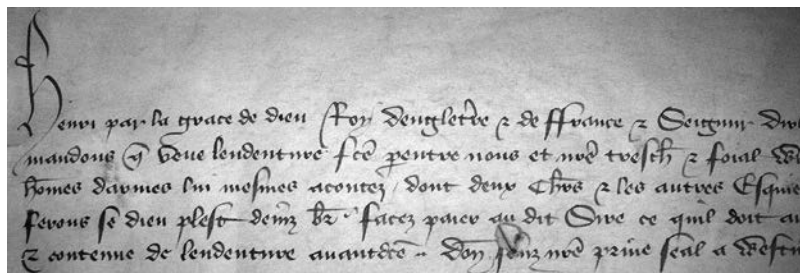 Henri par la grace de dieu Roy Dengletre & de ffrance & Seignur Dirl
mandons q̄ veue lendenture fcē pentre nous et nrē tresch & foial
hōmes darmes lui mesmes acontez / dont deux Chrs & les autres Esquie
ferons se dieu plest demz br̄ · facez paier au dit Sire ce quil doit au
& contenue de lendenture auantdcē .. Don souz nrē priue seal a Westm